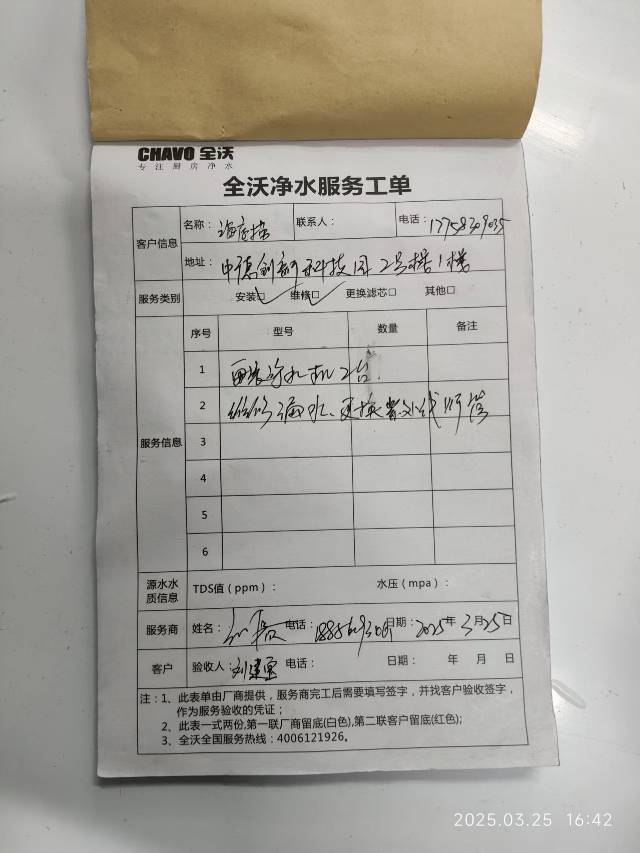 CHAVO 全沃
专注厨房净水
全沃净水服务工单
客户信息 名称：海底捞 联系人： 电话：17758309035
地址：中德创新科技园2号楼1楼
服务类别 安装□ 维修□ 更换滤芯□ 其他□
服务信息 序号 型号 数量 备注
1 净水机2台.
2 维修漏水、更换紫外线灯管
3
4
5
6
源水水质信息 TDS值（ppm）： 水压（mpa）：
服务商 姓名： 电话： 日期：2025年3月25日
客户 验收人：刘建 电话： 日期： 年 月 日
注：1、此表单由厂商提供，服务商完工后需要填写签字，并找客户验收签字，
作为服务验收的凭证；
2、此表一式两份,第一联厂商留底(白色),第二联客户留底(红色);
3、全沃全国服务热线：4006121926。
2025.03.25 16:42